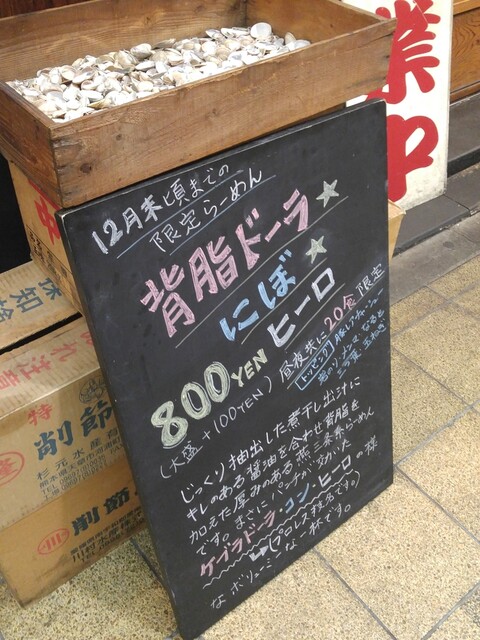 12月末頃までの
限定らーめん
背脂ドーラ☆
にぼ☆
ヒーロ
800YEN
(大盛+100YEN)
昼夜共に20食限定
トッピング
岩のり、メンマ、なると
じっくり抽出した煮干し出汁に
キレのある醤油を合わせ背脂を
加えた厚みのある燕三条系らーめん
です。まさにパンチが効いた
ケブラドーラ・コン・ヒーロの様
(プロレス技名です。)
なボリューミーな一杯です。
業中
特
削節
杉元水産
削節